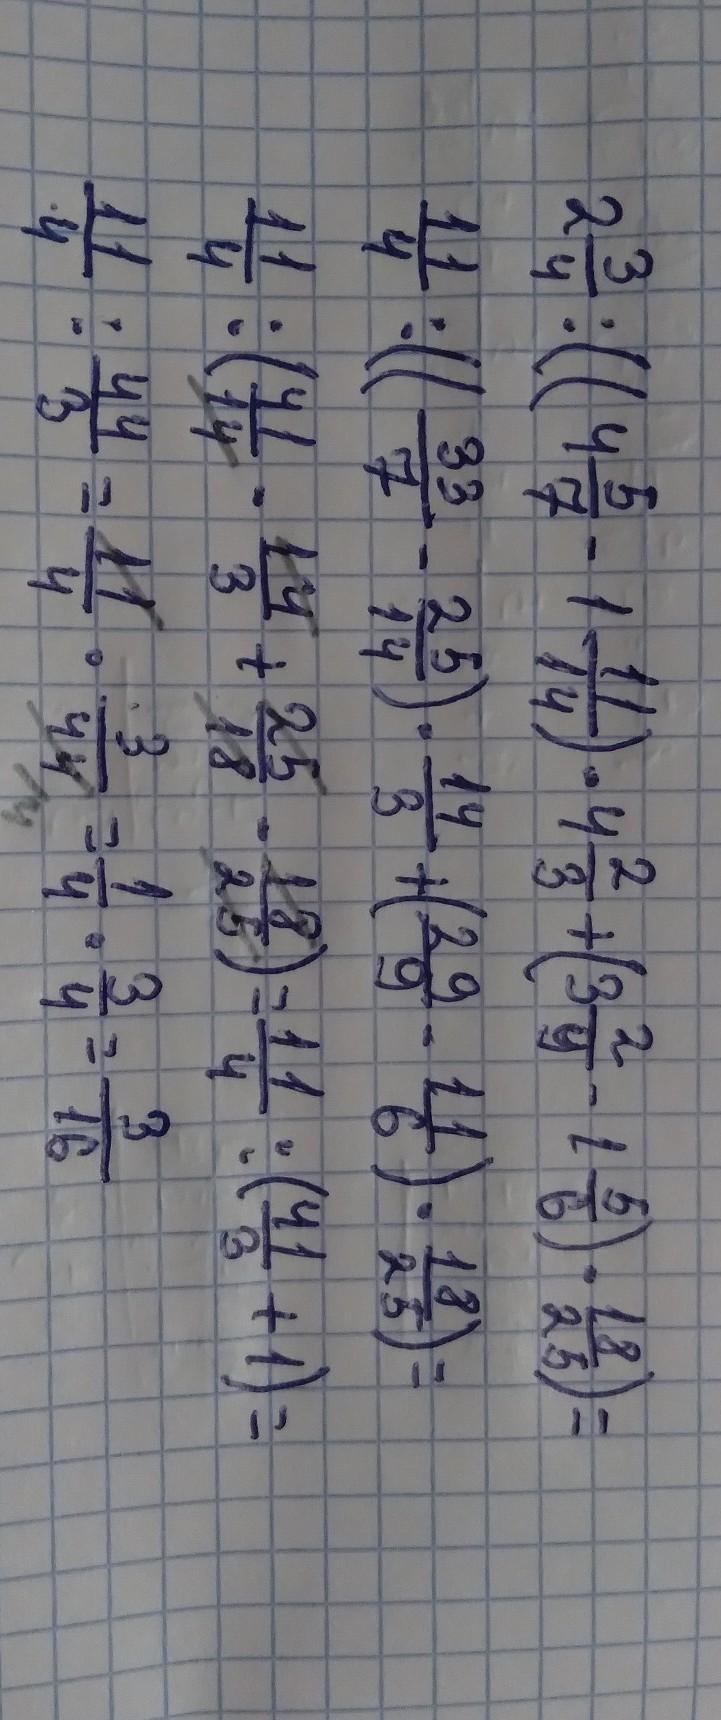 2 3/4 : ((4 5/7 - 1 11/14) · 4 2/3 + (3 2/9 - 1 5/6) · 18/25) =
11/4 : ((33/7 - 25/14) · 14/3 + (29/9 - 11/6) · 18/25) =
11/4 : (41/14 · 14/3 + 25/18 · 18/25) = 11/4 : (41/3 + 1) =
11/4 : 44/3 = 11/4 · 3/44 = 1/4 · 3/4 = 3/16